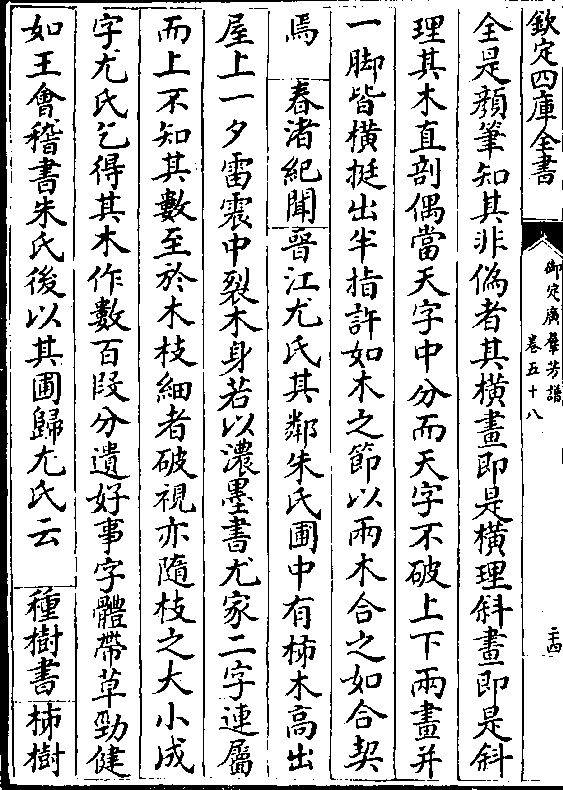 欽定四庫全書
御定廣羣芳譜
卷五十八
二十四
全是顔筆知其非僞者其橫畫即是橫理斜畫即是斜
理其木直剖偶當天字中分而天字不破上下兩畫并
一脚皆橫挺出半指許如木之節以兩木合之如合契
焉 春渚紀聞晉江尤氏其鄰朱氏圃中有柿木高出
屋上一夕雷震中裂木身若以濃墨書尤家二字連屬
而上不知其數至於木枝細者破視亦隨枝之大小成
字尤氏乞得其木作數百段分遺好事字體帶草勁健
如王會稽書朱氏後以其圃歸尤氏云 種樹書柿樹